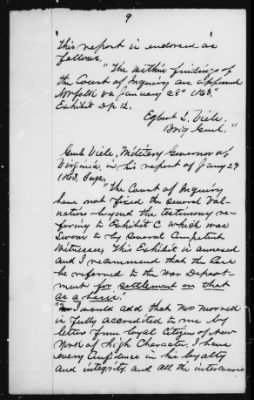 9
"This report is endorsed as
follows,
"The within findings of
the Court of Inquiry are approved
Norfolk Va January 28" 1863"
Exhibit Dp 12.
Egbert L. Viele.
Brig Genl."
Genl Viele, Military Governor of
Virginia, in his report of Jany 29
1863, says,
"The Court of Inquiry
have not fixed the several Val-
uations beyond the testimony re-
ferring to Exhibit C which was
sworn to by several Competent
Witnesses This Exhibit is annexed
and I recommend that the Case
be referred to the War Depart-
ment for settlement on that
as a basis."
"I would add that Mr
is fully accredited to me by
letters from loyal Citizens of New
York of high Character, I have
every Confidence in his loyalty
and integrity and all the